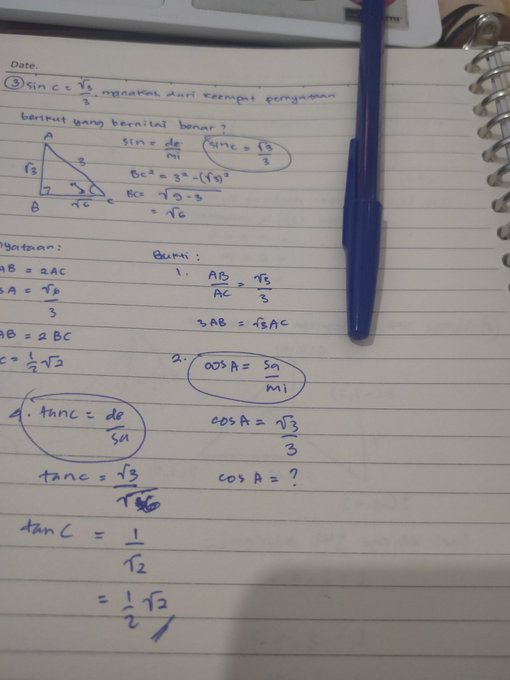 Date.
③ sin C = √3/3. manakah dari keempat pernyataan
berikut yang bernilai benar?
A
√3
3
B
√6
C
sin = de/mi
sin C = √3/3
BC² = 3² - (√3)²
BC = √9 - 3
= √6
nyataan:
AB = 2AC
s A = √6/3
AB = 2 BC
C = 1/2 √2
Bukti:
1. AB/AC = √3/3
3AB = √3 AC
2. cos A = sa/mi
cos A = √3/3
cos A = ?
4. tan C = de/sa
tan C = √3/√6
tan C = 1/√2
= 1/2 √2